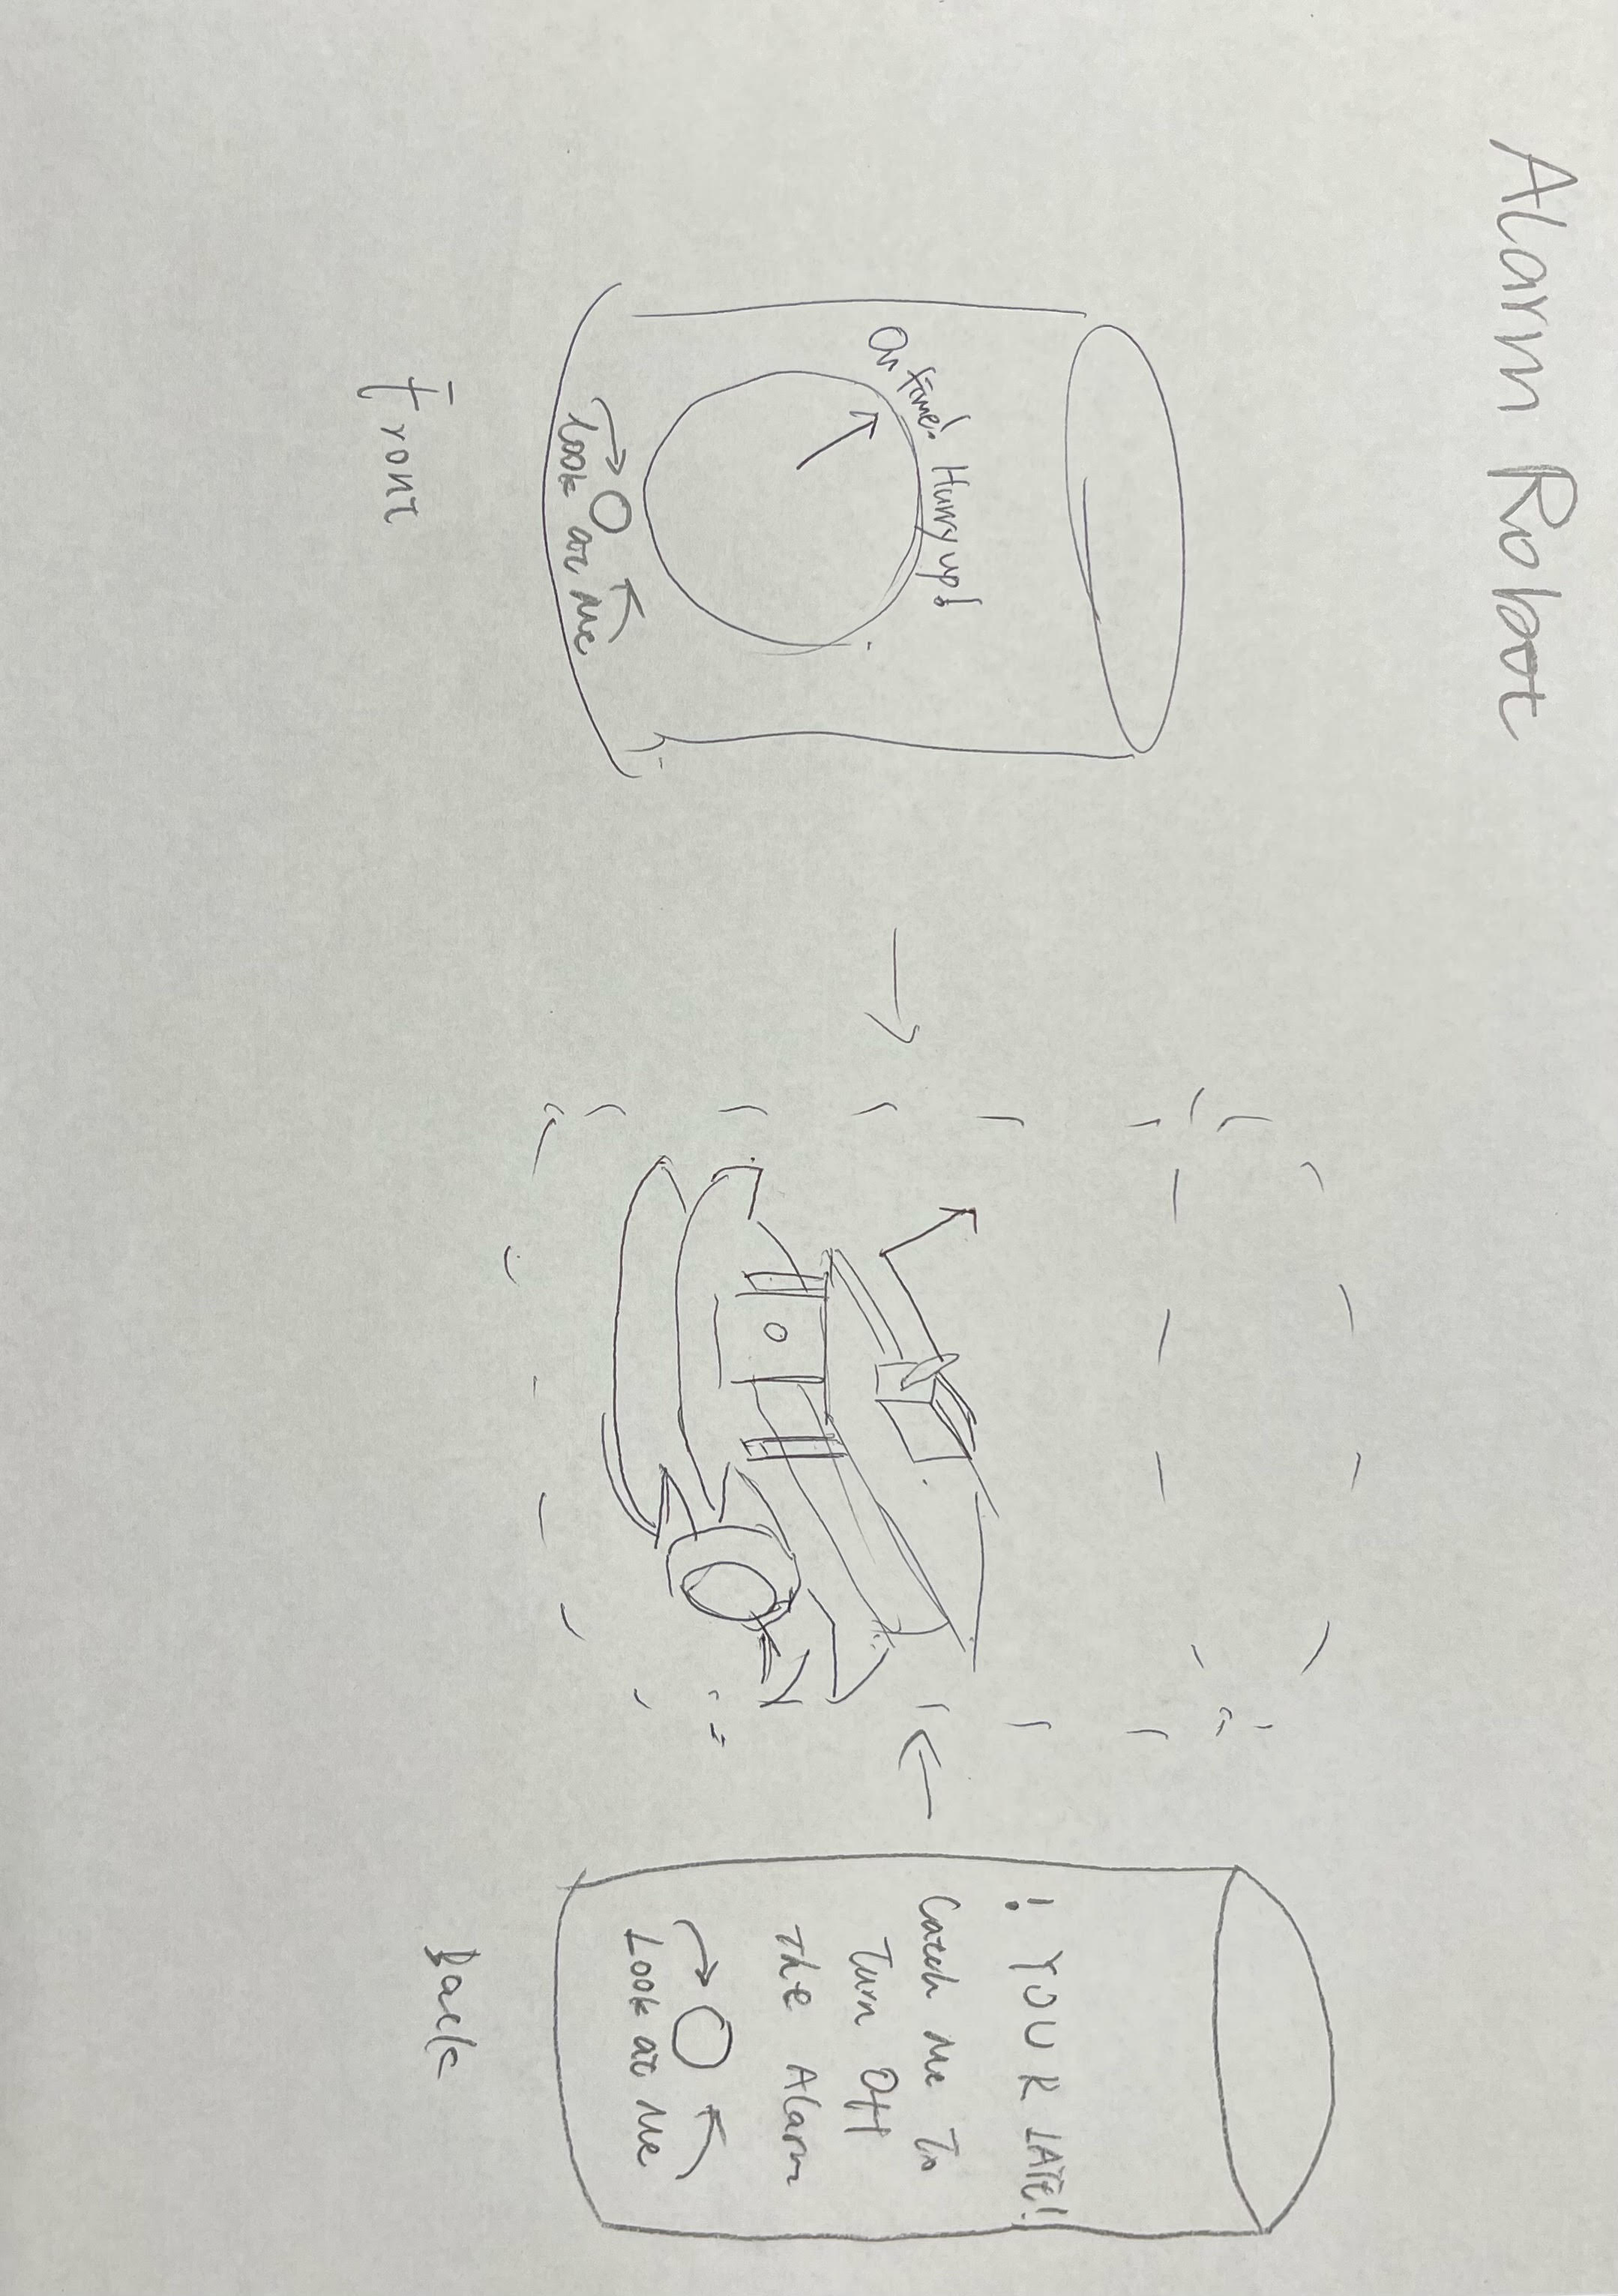 Alarm Robot
On time! Hurry up!
Look at Me
Front
! YOUR LATE!
Catch Me To
Turn Off
The Alarm
Look at Me
Back